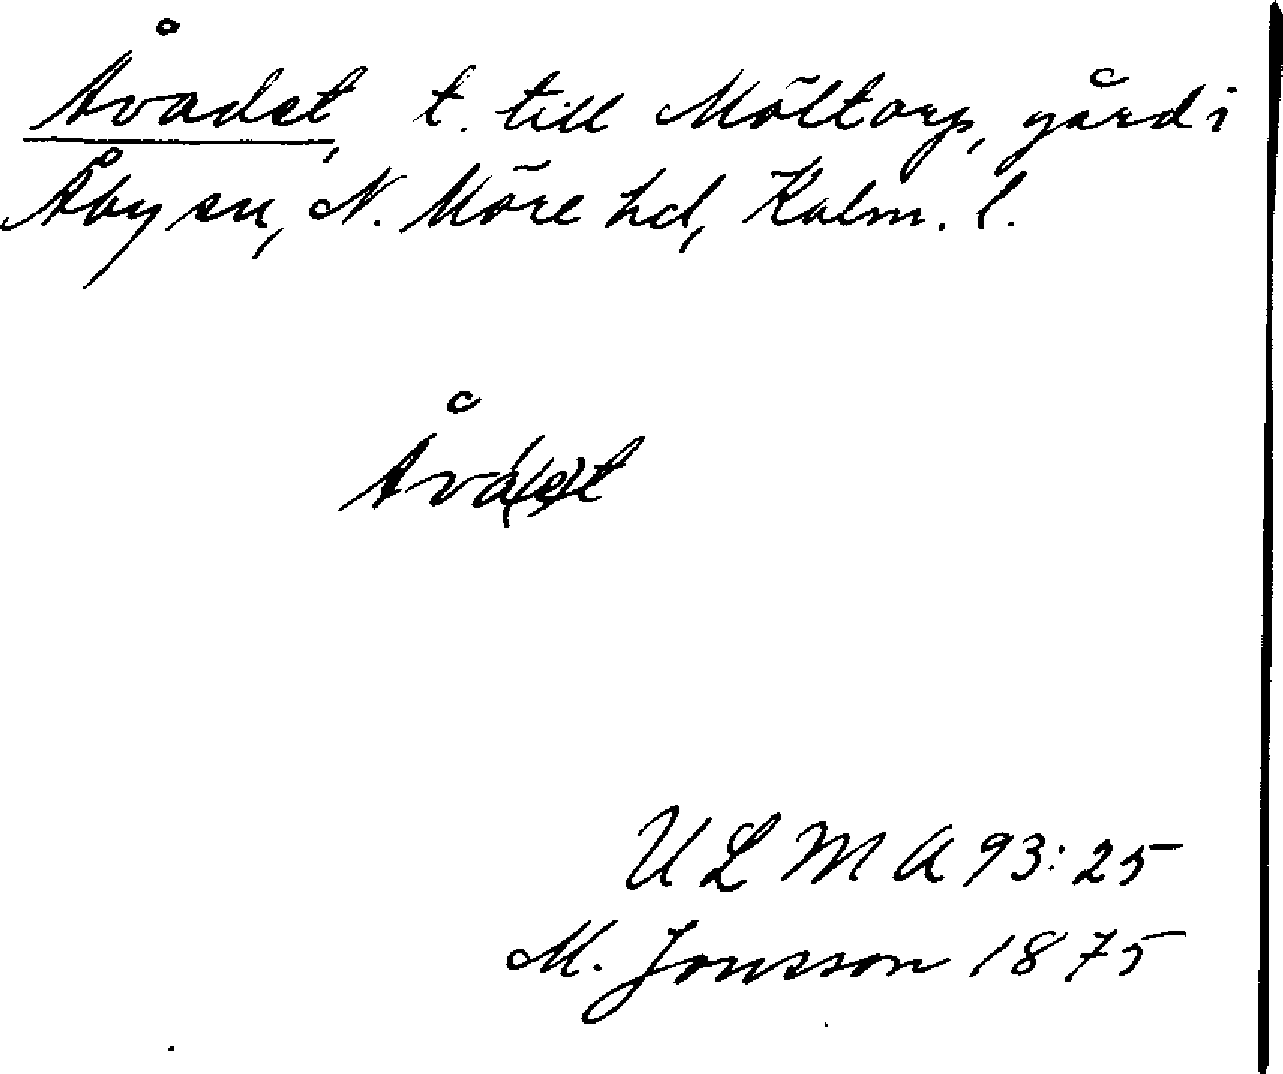 Åvadet, t. till Möltorp, gård i
Åby sn, N. Möre hd, Kalm. l.
ULMA 93:25
M. Jonsson 1875